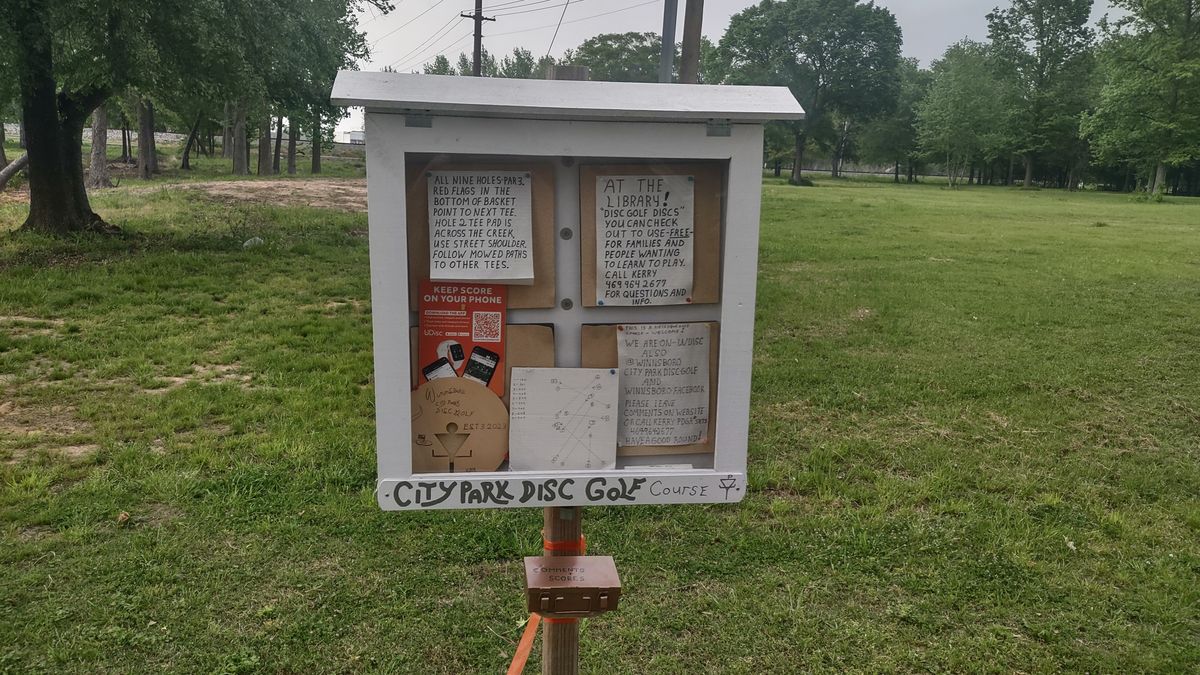 ALL NINE HOLES-PAR3.
RED FLAGS IN THE
BOTTOM OF BASKET
POINT TO NEXT TEE.
HOLE 2 TEE PAD IS
ACROSS THE CREEK,
USE STREET SHOULDER.
FOLLOW MOWED PATHS
TO OTHER TEES.
AT THE
LIBRARY!
"DISC GOLF DISCS"
YOU CAN CHECK
OUT TO USE-FREE-
FOR FAMILIES AND
PEOPLE WANTING
TO LEARN TO PLAY.
CALL KERRY
469 964 2677
FOR QUESTIONS AND
INFO.
KEEP SCORE
ON YOUR PHONE
DOWNLOAD THE APP
UDisc
THIS IS A
WE ARE ON-UDISC
ALSO
@WINNSBORO
CITY PARK DISC GOLF
AND
WINNSBORO FACEBOOK
PLEASE LEAVE
COMMENTS ON WEBSITE
OR CALL KERRY PDGA
4699642677
HAVE A GOOD ROUND!
WINNSBORO
CITY PARK
DISC GOLF
EST 3 2023
CITY PARK DISC GOLF COURSE
COMMENTS
SCORES